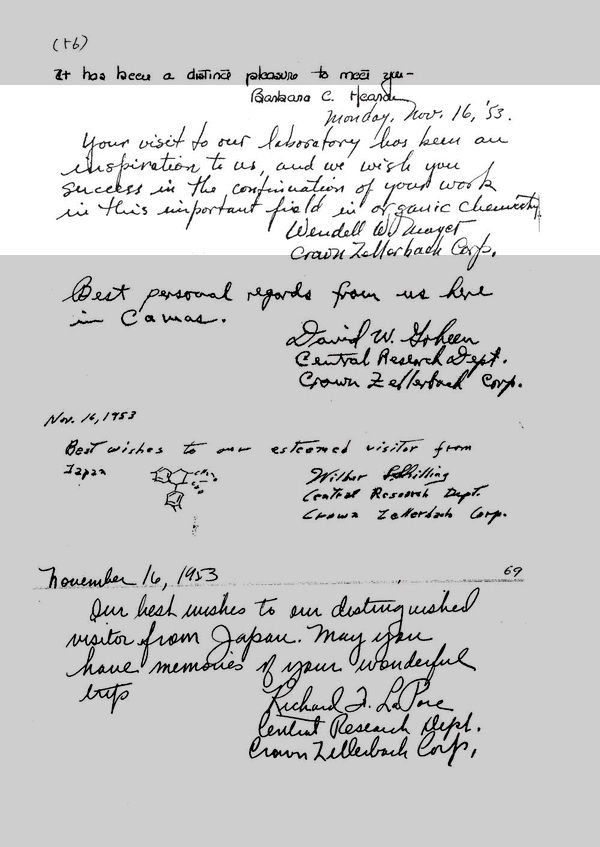 (+6)
It has been a distinct pleasure to meet you-
Barbara C.
Monday, Nov. 16, '53.
Your visit to our laboratory has been an
inspiration to us, and we wish you
success in the continuation of your work
in this important field in organic chemistry.
Wendell W.
Crown Zellerbach Corp.
Best personal regards from us here
in Camas.
David W. Goheen
Central Research Dept.
Crown Zellerbach Corp.
Nov. 16, 1953
Best wishes to our esteemed visitor from
Japan
Wilbur Shilling
Central Research Dept.
Crown Zellerbach Corp.
69
November 16, 1953
Our best wishes to our distinguished
visitor from Japan. May you
have memories of your wonderful
trip
Richard F. LaPore
Central Research Dept.
Crown Zellerbach Corp.